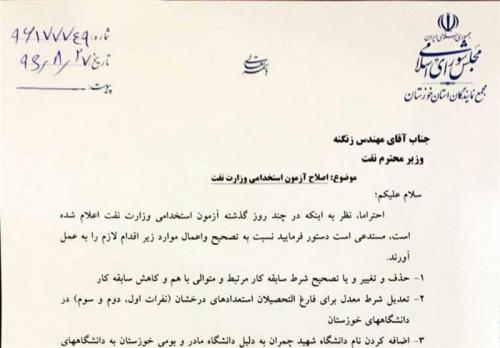 جمهوری اسلامی ایران
مجلس شورای اسلامی
مجمع نمایندگان استان خوزستان
شماره: ۹۶۱۷۷۷۴۹
تاریخ ۹۶/۸/۲۷
پیوست:
جناب آقای مهندس زنگنه
وزیر محترم نفت
موضوع: اصلاح آزمون استخدامی وزارت نفت
سلام علیکم؛
احتراما، نظر به اینکه در چند روز گذشته آزمون استخدامی وزارت نفت اعلام شده
است، مستدعی است دستور فرمایید نسبت به تصحیح واعمال موارد زیر اقدام لازم را به عمل
آورند.
۱- حذف و تغییر و یا تصحیح شرط سابقه کار مرتبط و متوالی با هم و کاهش سابقه کار
۲- تعدیل شرط معدل برای فارغ التحصیلان استعدادهای درخشان (نفرات اول، دوم و سوم) در
دانشگاههای خوزستان
۳- اضافه کردن نام دانشگاه شهید چمران به دلیل دانشگاه مادر و بومی خوزستان به دانشگاههای